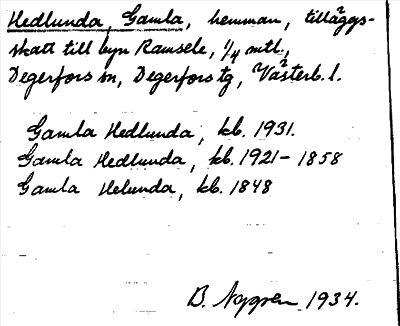 Hedlunda, Gamla, hemman, tilläggs-
skatt till byn Ramsele, 1/4 mtl.,
Degerfors sn, Degerfors tg, Västerb. l.
Gamla Hedlunda, kb. 1931.
Gamla Hedlunda, kb. 1921-1858
Gamla Helunda, kb. 1848
B. Nygren 1934.